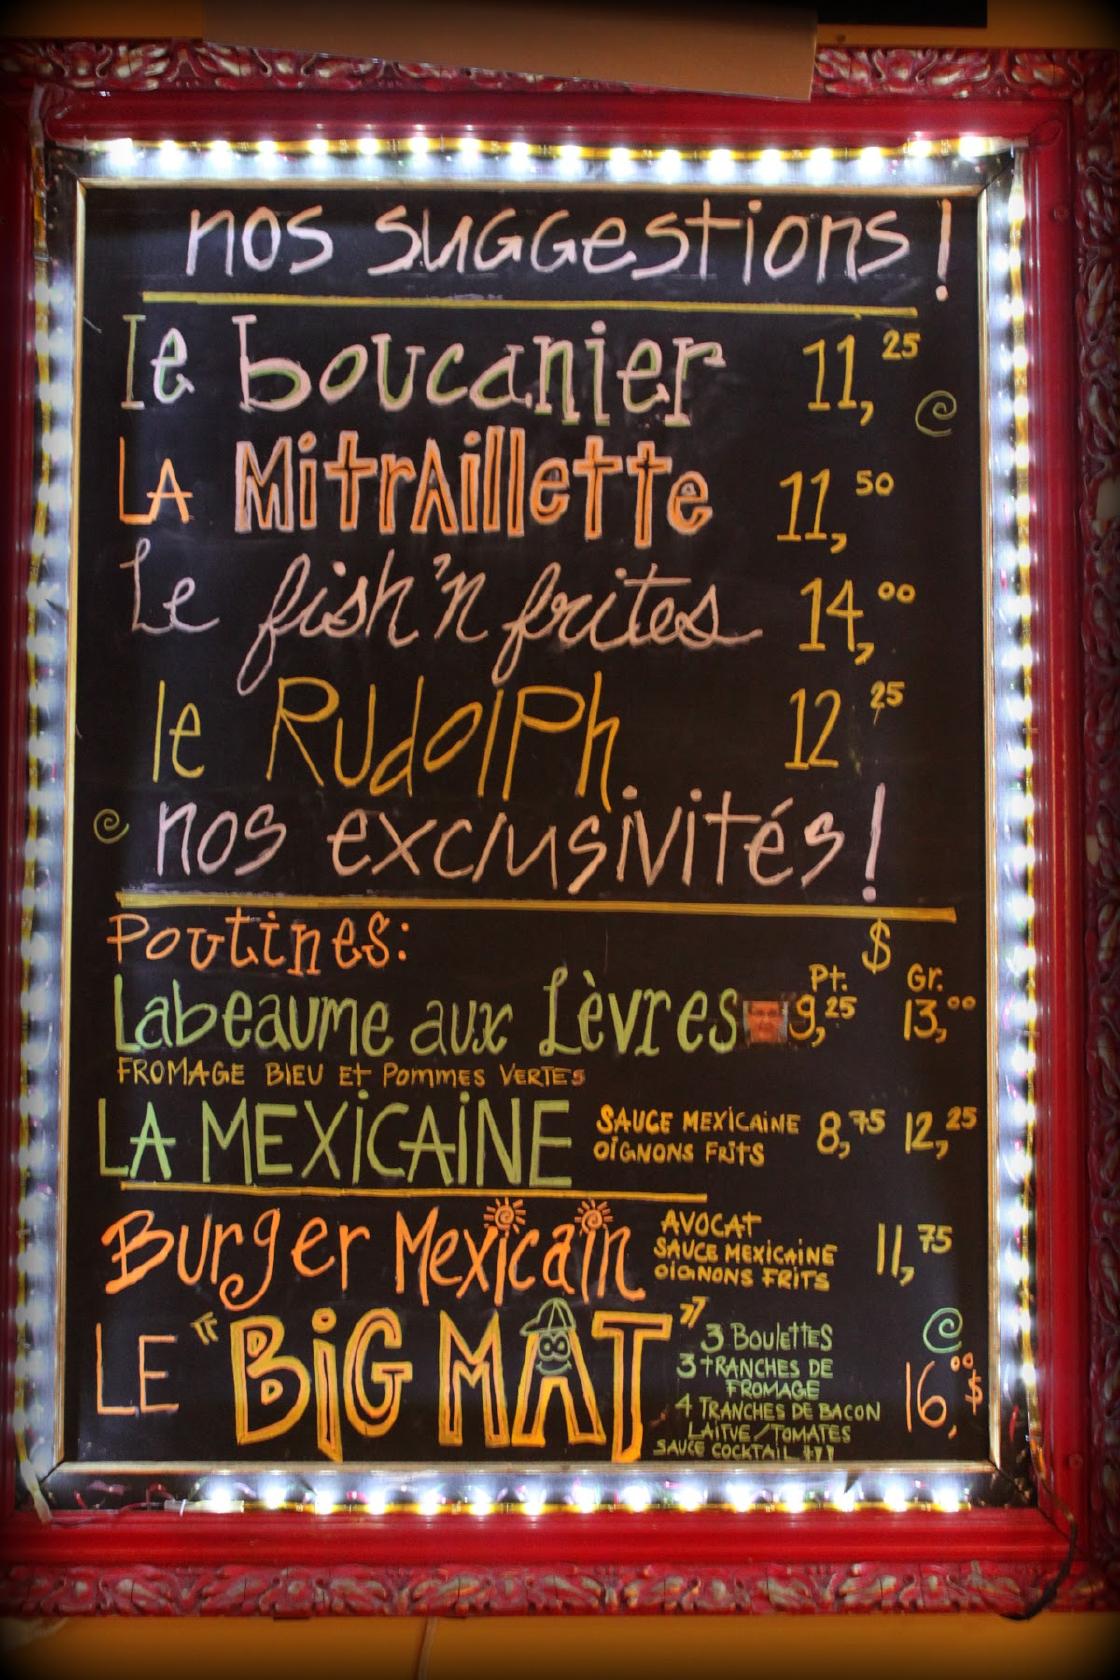 nos suggestions !
le boucanier 11,25
LA MitrAillette 11,50
Le fish'n frites 14,00
le Rudolph 12 25
nos exclusivités !
Poutines: $
Pt. Gr.
Labeaume aux Lèvres 9,25 13,00
FROMAGE BLEU Et Pommes VERTES
LA MEXiCAiNE SAUCE MEXICAiNE 8,75 12,25
OiGNONS FRitS
Burger Mexicain AVOCAT 11,75
SAUCE MEXICAiNE
OiGNONS FRitS
LE "BiG MAT" 3 BoulettES 16,00$
3 tRANCHES DE
FROMAGE
4 TRANCHES DE BACON
LAITUE/TOMATES
SAUCE COCKTAIL !!!